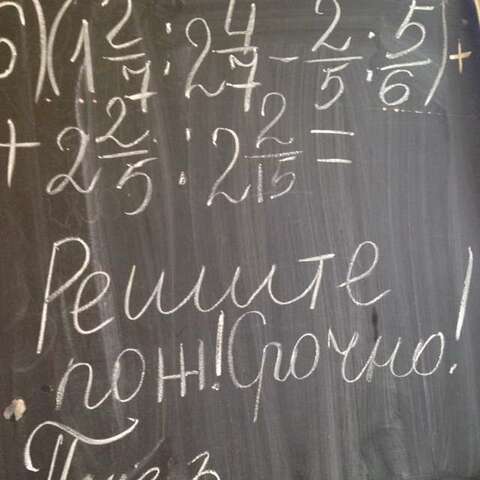 б) (1 2/7 : 2 4/7 - 2/5 : 5/6) +
+ 2 2/5 : 2 2/15 =
Решите
пож! Срочно!